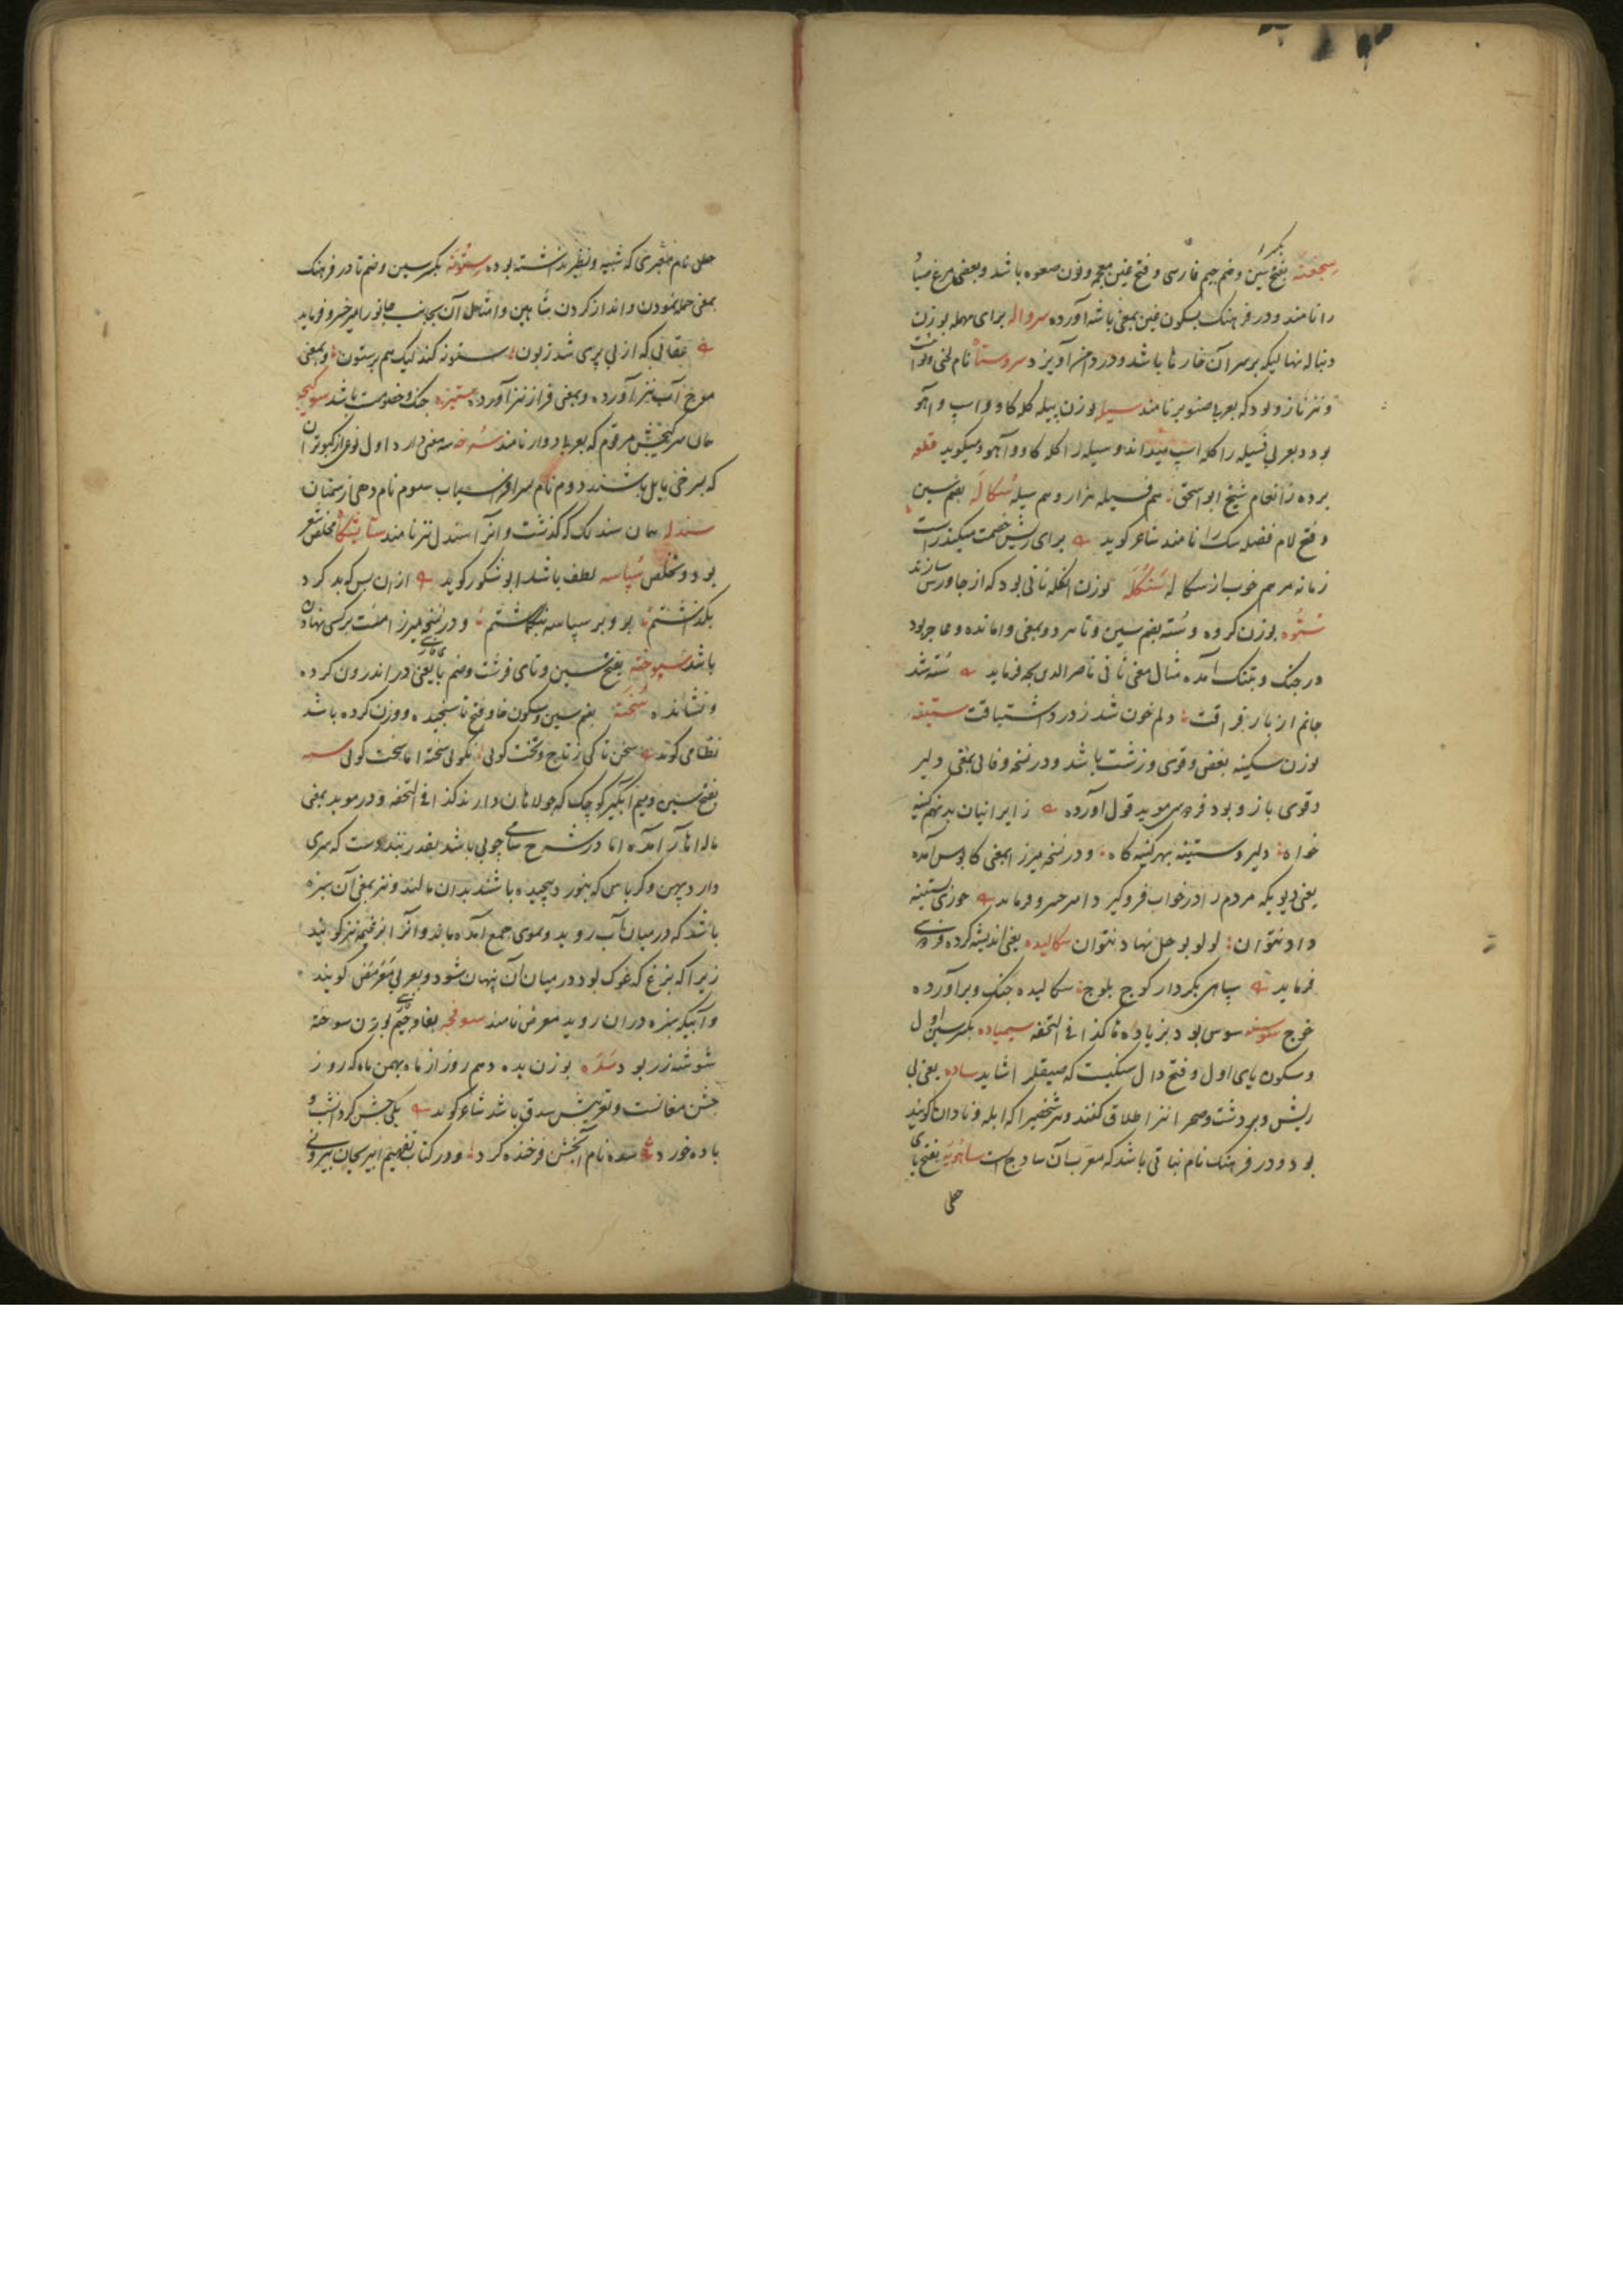 سجغنه بفتح سین و ضم جیم فارسی و فتح غین معجمه و نون صعوه باشد و بعضی مرغ سیاه
را نامند و در فرهنک بسکون غین بمعنی باشه آورده سرواله برای مهمله بوزن
دنباله نها لیکه بر سر آن خارها باشد و در دامن آویزد سروستاه نام لحنی و نوا
و نیز نازو بود که بعربی صنوبر نامند سیله بوزن بیله کله کاو و اسپ و آهو
بود و بعربی فسیله را کله اسپ میداند و سیله را کله کاو و آهو میکوید قطعه
برده ز انعام شیخ ابو اسحق هم فسیله هزار و هم سیله سکاله بضم سین
و فتح لام فضله سک را نامند شاعر کوید برای ریش خصمت میکند راست
زمانه مرهم خوب از سکاله سنکله بوزن انکله نانی بود که از جاورس سازند
ستوه بوزن کروه و سته بضم سین و تا هر دو بمعنی وامانده و عاجز بود
در جنک و بتنک آمده مثال معنی ثانی ناصر الدین بجه فرماید سته شد
جانم از بار فراقت دلم خون شد ز درد اشتیاقت ستینه
بوزن سکینه بغض و قوی و زشت باشد و در نسخه وفائی بمعنی دلیر
و قوی بازو بود فردوسی موید قول آورده ز ایرانیان بد تهم کینه
خواه دلیر و ستینه بهر کینه کاه و در نسخه میرزا بمعنی کابوس آمده
یعنی دیویکه مردم را در خواب فرو کیرد امیر خسرو فرماید حوزی ستینه
داد نتوان لولو بوحل نهاد نتوان سکالیده یعنی اندیشه کرده فردوسی
فرماید سپاهی بکردار کوج بلوج سکالیده جنک و برآورده
خوج سوسنه سوس بود بزیاده ها کذا فی التحفه سیمیاده بکسر سین اول
و سکون یای اول و فتح دال سنکیست که صیقلر را شاید ساده یعنی بی
ریش و بر دشت و صحرا نیز اطلاق کنند و هر شخصیرا که ابله و نادان کویند
بود و در فرهنک نام نباتی باشد که معرب آن سادج است ساهویه بفتح یای
حطی
حطی نام معبری که شبیه و نظیر نداشته بوده ستونه بکسر سین و ضم تا در فرهنک
بمعنی حمله نمودن و انداز کردن شاهین و امثال آن بجانب جانور امیر خسرو فرماید
عقابی که از بی پری شد زبون ستونه کند لیک هم بر ستون و بمعنی
موج آب نیز آورده و بمعنی فراز نیز آورده ستیزه جنک و خصومت باشد
همان سرکیجش مرقوم که بعربی دوار نامند سرخه سه معنی دارد اول نوعی از کبوتران
که بسرخی مایل باشند دوم نام پسر افراسیاب سوم نام دهی از سمنان
سندله همان سندلک که کذشت و آنرا سندل نیز نامند ستایشکاه مخلص شعر
بود و تخلص سپاسه لطف باشد ابو شکور کوید از آن پس که بد کرد
بکذاشتم بر و بر سپاسه بنکاشتم و در نسخه میرزا منت بر کسی نهادن
باشد سپوخته بفتح سین و تای قرشت و ضم با یعنی در اندرون کرده
و نشانده سخته بضم سین و سکون خا و فتح تا سنجیده و وزن کرده باشد
نظامی کوید سخن تا کی ز تاج و تخت کوئی نکوئی سخته اما سخت کوئی سمه
بفتح سین و میم آبکیر کوچک که جولاهان دارند کذا فی التحفه و در موید بمعنی
ماله اهار آمده اما در شرح سامی چوبی باشد بقدر بند دست که سری
دارد پهن و کرباسی که بنورد پیچیده باشند بدان مالند و نیز بمعنی آن سبزه
باشد که در میان آب روید و بموی جمع آمده ماند و آنرا بزغمه نیز کویند
زیرا که بزغ که غوک بود در میان آن پنهان شود و بعربی عرمض کویند
و آبیکه سبزه در آن روید معرض نامند سوفچه بفا و جیم بوزن سوخته
شوشه زر بود سده بوزن بده دهم روز از ماه بهمن ماه که روز
جشن مغانست و تعریبش سدق باشد شاعر کوید یکی جشن کرد آنشب و
باده خورد سده نام آن جشن فرخنده کرد و در کتاب تفهیم ابو ریحان بیرونی